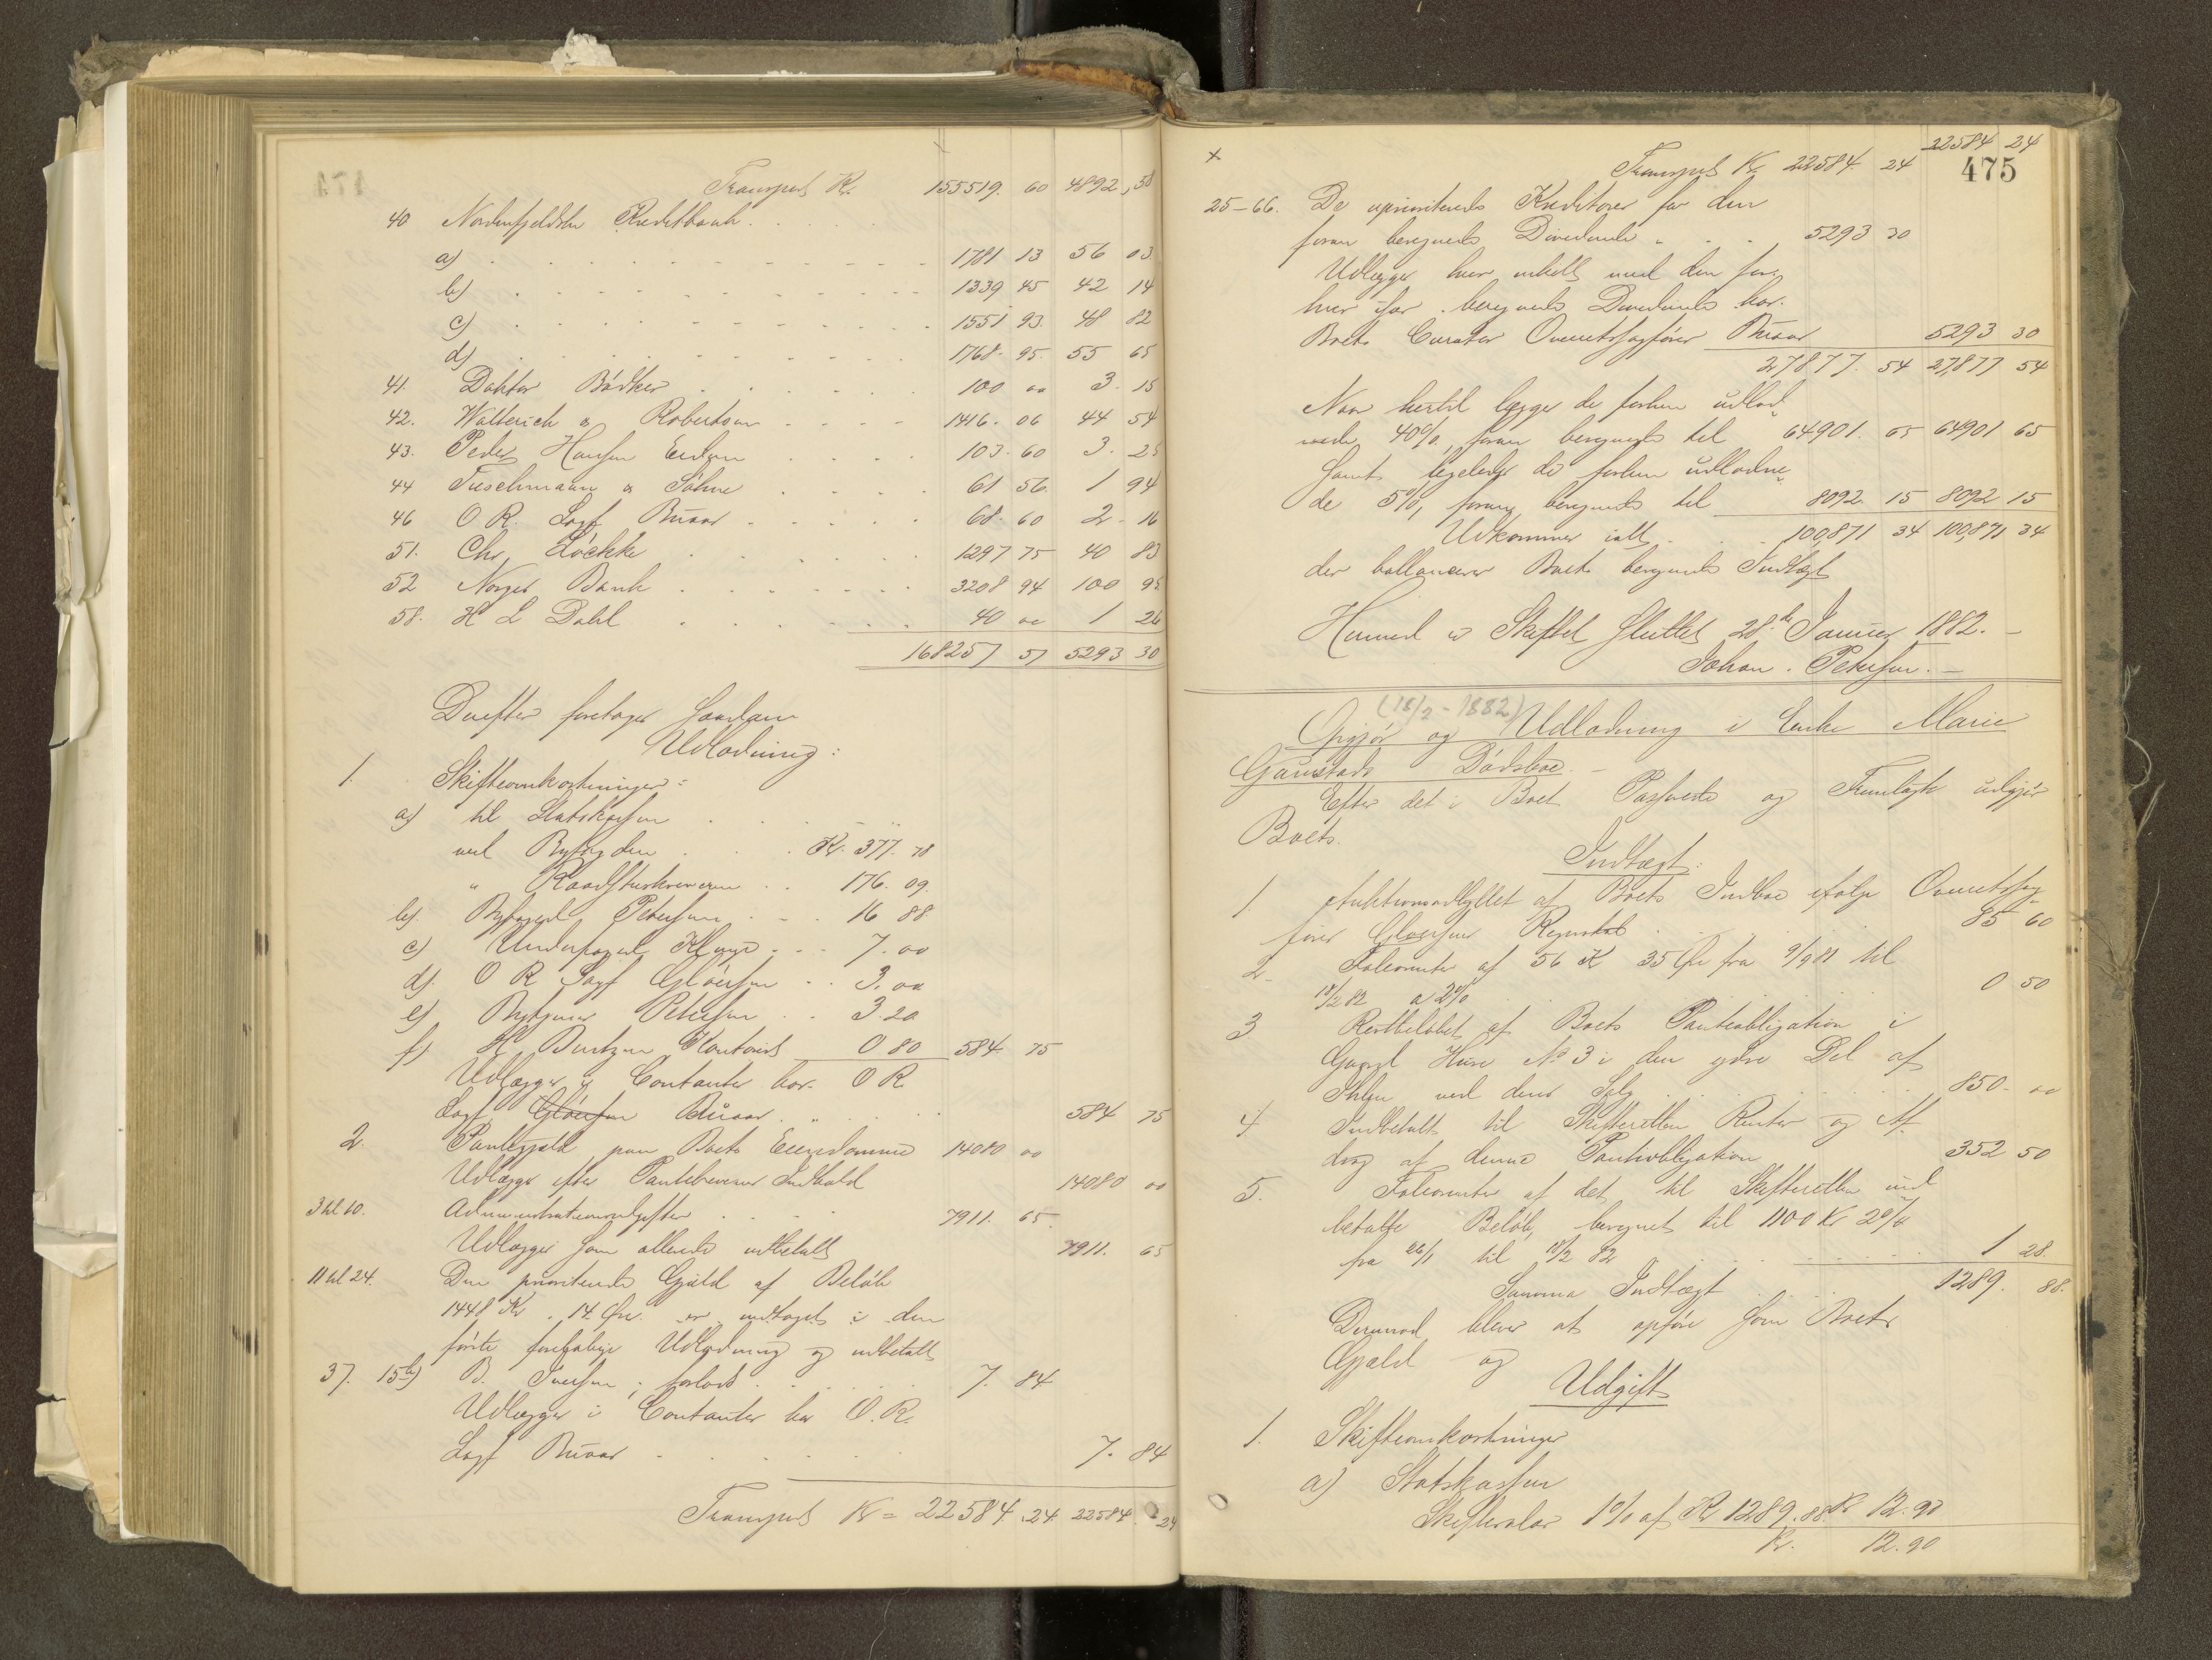 Transport Kr. 155519. 60 4892,58
40 Nordenfjeldske Kreditbank
a) 1781 13 56 03
b) 1339 45 42 14
c) 1551 93. 48 82
d) 1768. 95. 55 65
41. Doktor Bödker 100 00 3. 15
42. Walterich & Robertson 1416. 06 44 54
43. Peder Hansen 103. 60 3. 25
44 & Söhne 61 56. 1 94
46 O R. Sagf Buaas 68. 60 2. 16
51. Chr. Löchke 1297 75 40 83
52 Norges Bank 3208 94 100 95
58. H L Dahl 40 00 1 26
168257 57 5293 30
Derefter foretages saadan
Udlodning:
1. Skifteomkostninger:
a) til Statskassen
ved Byfogden Kr. 377. 78
" Raadstuskriveren 176. 09.
b). Byfoged Petersen 16 88
c) Underfoged Klynge 7. 00
d). O R Sagf Glöersen 3. 00
e) Petersen 3. 20
f) H. Kontorist 0 80 584. 75
Udlægges i Contanter hos O R.
Sagf Glöersen Buaas 584 75
2. Pantegjæld paa Boets Eiendomme 14080 00
Udlægges efter Pantebrevenes Indhold 14080 00
3 til 10. Administrationsudgifter 7911. 65.
Udlægges som allerede udbetalt 7911. 65
11 til 24. Den prioriterede Gjæld af Beløb
1448 Kr. 14 Øre er indtaget i den
første foreløbige Udlodning og udbetalt
37. 15b) B. Iversen, forlods 7. 84
Udlægges i Contanter hos O. R.
Sagf Buaas 7. 84
Transport Kr = 22584. 24. 22584. 24
475
22584 24
Transport Kr 22584. 24
25-66. De uprioriterede Kreditorer for den
foran beregnede Dividende 5293 30
Udlægges hver enkelt med den for
hver især beregnede Dividende hos
Boets Curator Overretssagfører Buaas 5293 30
27877. 54 27,877 54
Naar hertil lægges de forhen udlod
nede 40%, foran beregnede til 64901. 65 64901 65
samt ligeledes de forhen udlodne
de 5%, foran beregnede til 8092. 15 8092 15
Udkommer ialt 100,871 34 100,871 34
der ballancerer Boets beregnede Indtægt
Hermed er Skiftet sluttet 28.de Januar 1882.
Johan. Petersen.
(18/2 - 1882)
Opgjør og Udlodning i Enke Marie
Gaustads Dødsboe.
Efter det i Boet Passerede og Fremlagte udgjør
Boets.
Indtægt:
1 Auktionsudbyttet af Boets Indboe ifølge Overretssag
fører Gløersens Regnskab 85 60
2. Foliorenter af 56 Kr 35 Øre fra 9/9 81 til
18/2 82 a 2% 0 50
3 Restbeløbet af Boets Panteobligation i
Gaard Huse No 3 i den ydre Del af
Ihlen ved dens Salg 850. 00
4 Indbetalt til Skifteretten Renter og Af
drag af denne Panteobligation 352 50
5. Foliorenter af det til Skifteretten ind
betalte Beløb, beregnet til 1100 Kr 2%
fra 26/1 til 18/2 82 1 28.
Summa Indtægt 1289. 88.
Derimod bliver at opføre som Boets
Gjæld og
Udgift
1. Skifteomkostninger
a) Statskassen
Skiftesalær 1% af Kr 1289.88. Kr 12. 90
Kr. 12. 90